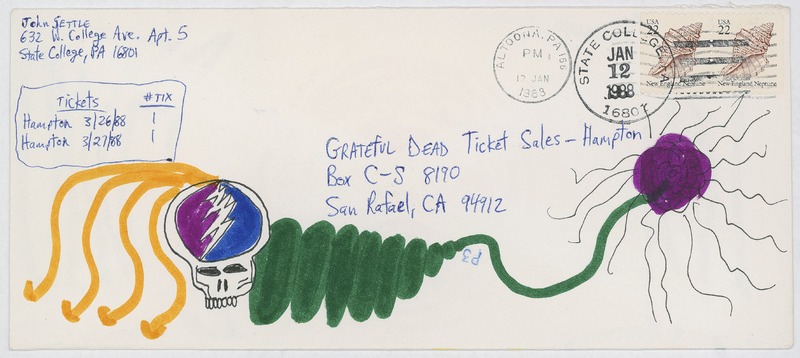 John SETTLE
632 W. College Ave. Apt. 5
State College, PA 16801
Tickets #TIX
Hampton 3/26/88 1
Hampton 3/27/88 1
ALTOONA, PA 166
PM
12 JAN
1988
STATE COLLEGE, PA
JAN
12
1988
16801
USA
22
New England Neptune
USA
22
New England Neptune
GRATEFUL DEAD Ticket Sales – Hampton
Box C-S 8190
San Rafael, CA 94912
P3